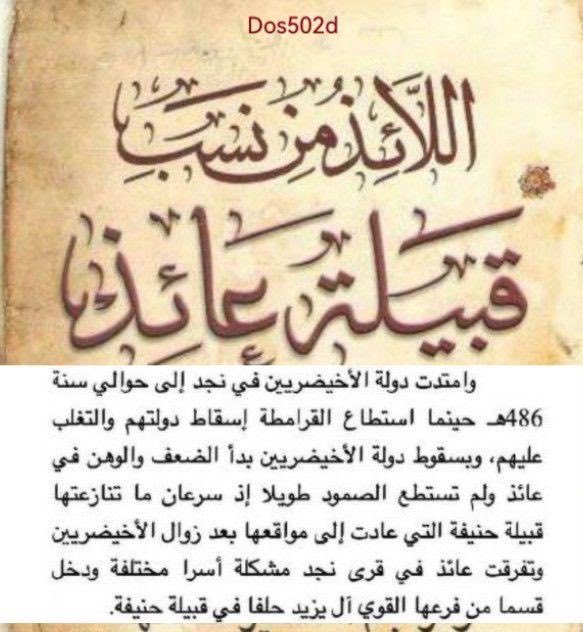 Dos502d
اللَّائِذُ مِن نَسَبِ
قبيلة عائذ
وامتدت دولة الأخيضريين في نجد إلى حوالي سنة
486هـ حينما استطاع القرامطة إسقاط دولتهم والتغلب
عليهم، وبسقوط دولة الأخيضريين بدأ الضعف والوهن في
عائذ ولم تستطع الصمود طويلا إذ سرعان ما تنازعتها
قبيلة حنيفة التي عادت إلى مواقعها بعد زوال الأخيضريين
وتفرقت عائذ في قرى نجد مشكلة أسرا مختلفة ودخل
قسما من فرعها القوي آل يزيد حلفا في قبيلة حنيفة.